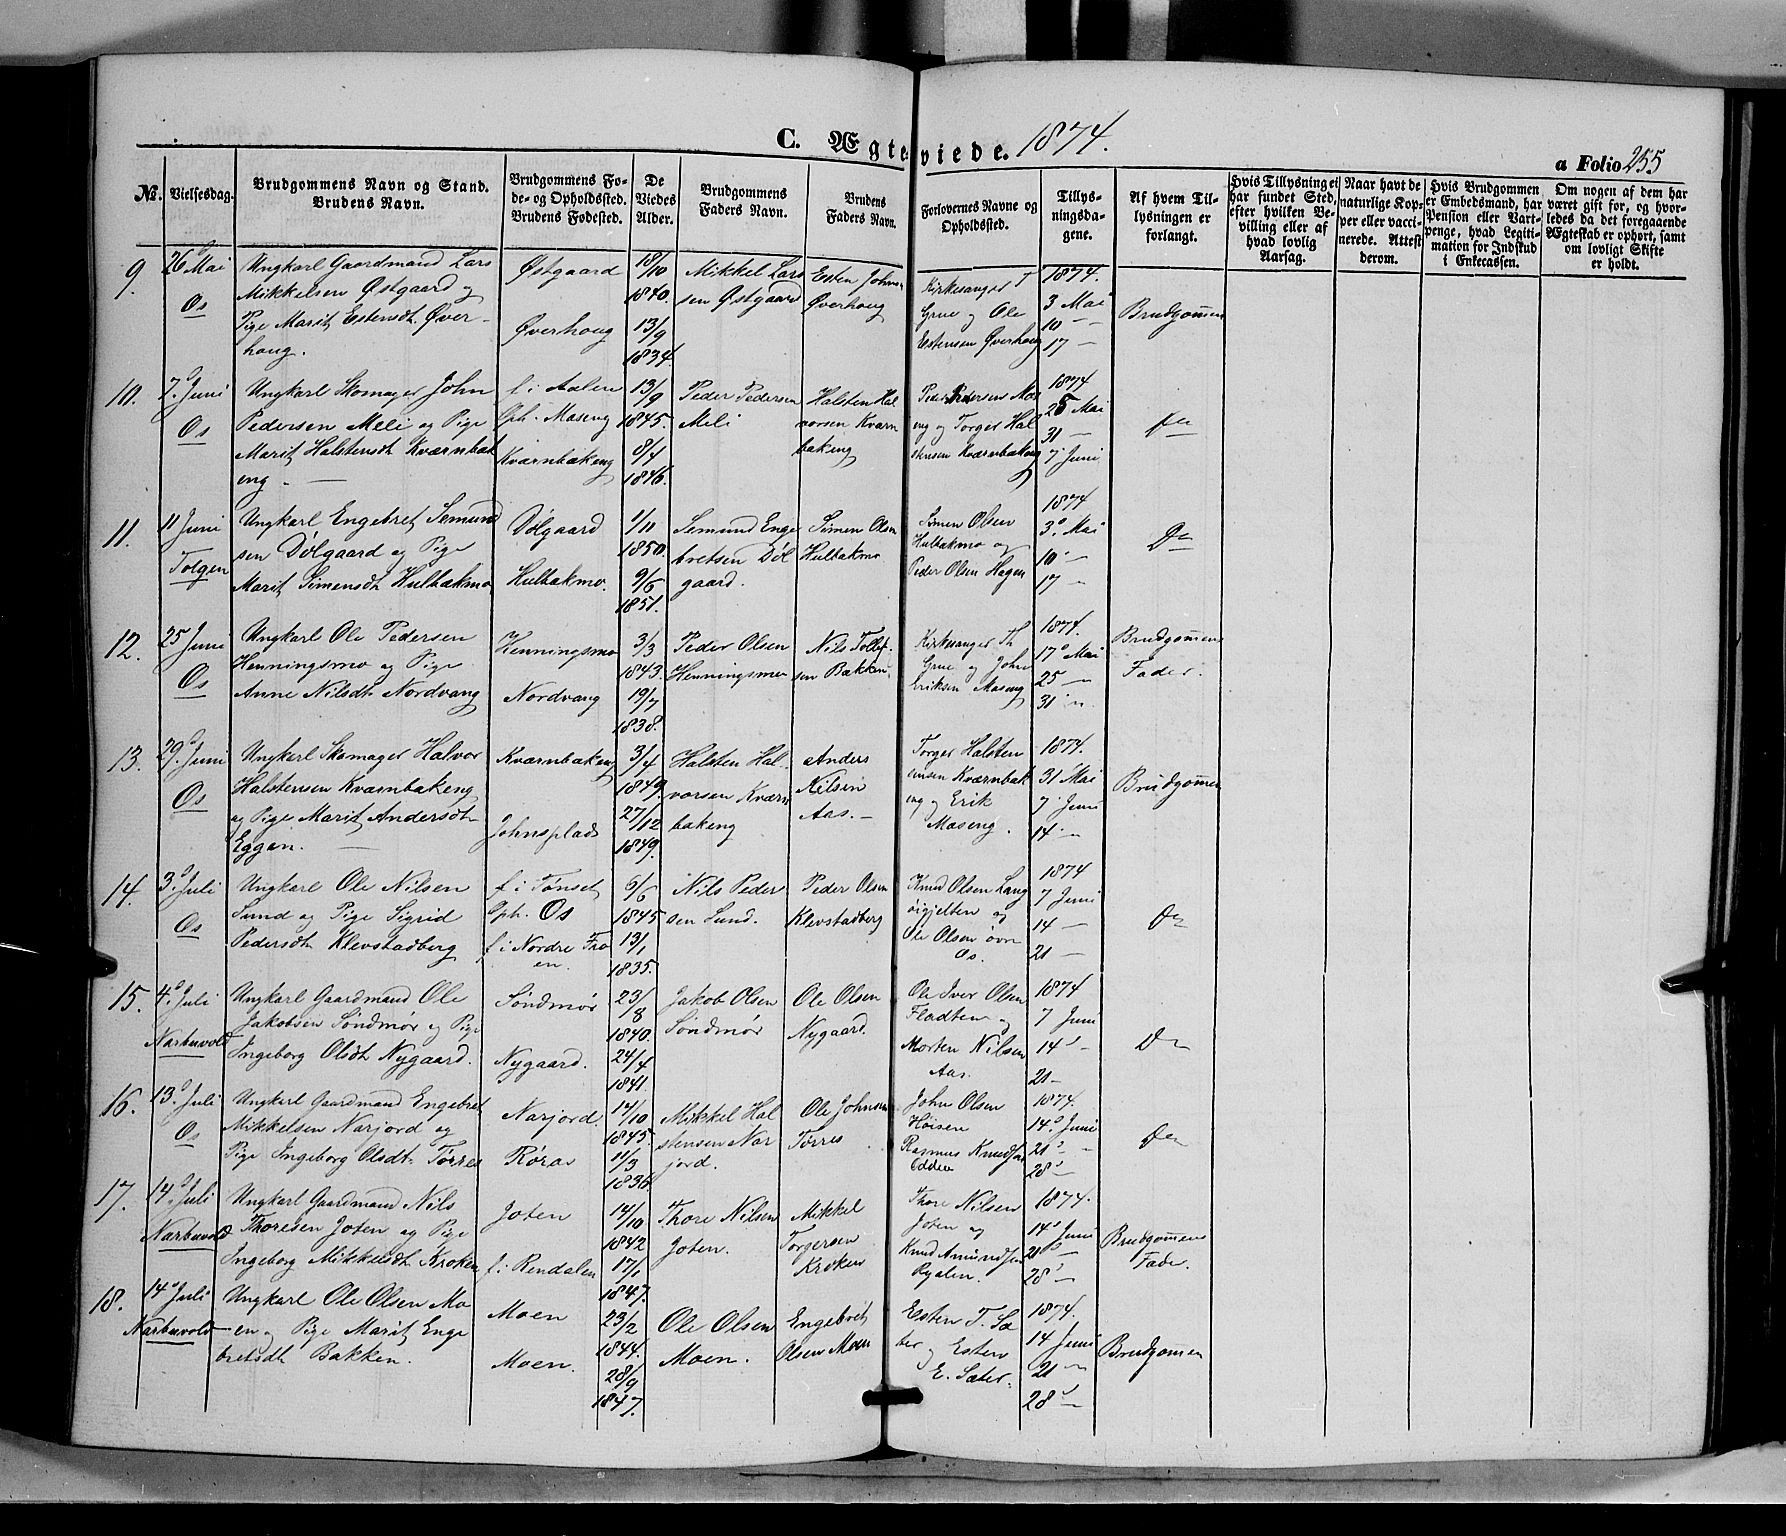 C. Ægteviede. 1874.
a Folio 255
No.
Vielsesdag.
Brudgommens Navn og Stand.
Brudens Navn.
Brudgommens Fø-
de- og Opholdssted.
Brudens Fødested.
De
Viedes
Alder.
Brudgommens
Faders Navn.
Brudens
Faders Navn.
Forlovernes Navne og
Opholdssted.
Tillys-
ningsda-
gene.
Af hvem Til-
lysningen er
forlangt.
Hvis Tillysning ei
har fundet Sted,
efter hvilken Be-
villing eller af
hvad lovlig
Aarsag.
Naar havt de
naturlige Kop-
per eller vacci-
nerede. Attest
derom.
Hvis Brudgommen
er Embedsmand, har
Pension eller Vart-
penge, hvad Legiti-
mation for Indskud
i Enkecassen.
Om nogen af dem har
været gift før, og hvor-
ledes da det foregaaende
Ægteskab er ophørt, samt
om lovligt Skifte
er holdt.
9.
26 Mai
Os
Ungkarl Gaardmand Lars
Mikkelsen Østgaard og
Pige Marit Estensdt. Øver-
houg.
Østgaard
Øverhoug
18/10
1840.
13/9
1834.
Mikkel Lars
sen Østgaard
Esten Johns-
Øverhoug
Kirkesanger T
Grue og Ole
Estensen Øverhoug
1874.
3 Mai
10 –
17 –
Brudgommen
10.
7. Juni
Os
Ungkarl Skomager John
Pedersen Meli og Pige
Marit Halstensdt Kværnbak
eng. —
f. i Aalen
Oph. Moseng
Kværnbakeng
13/9
1845.
8/4
1846.
Peder Pedersen
Meli
Halsten Hal
vorsen Kværn
bakeng
Peder Pedersen Mos
eng og Torger Hal
stensen Kværnbakeng
1874
25 Mai
31 –
7 Juni
do
11.
11 Juni
Tolgen
Ungkarl Engebret Semund
sen Dølgaard og Pige
Marit Simensdt Hulbakmo
Dølgaard
Hulbakmo.
1/10
1850.
9/6
1851.
Semund Enge
bretsen Døl
gaard.
Simen Olsen
Hulbakmo
Simen Olsen
Hulbakmo og
Peder Olsen Hagen
1874
3. Mai
10 –
17 –
Do
12.
25 Juni
Os
Ungkarl Ole Pedersen
Henningsmo og Pige
Anne Nilsdt Nordvang
Henningsmo
Nordvang
3/3
1843.
19/7
1838.
Peder Olsen
Henningsmo
Nils Tollef-
sen Bakken
Kirkesanger Th
Grue og John
Eriksen Moseng
1874.
17 Mai
25 –
31 –
Brudgommens
Fader.
13.
29. Juni
Os
Ungkarl Skomager Halvor
Halstensen Kværnbakeng
og Pige Marit Andersdt
Eggen. —
Kværnbakeng
Johnsplads
3/4
1849.
27/12
1849.
Halsten Hal-
vorsen Kværn
bakeng
Anders
Nilsen
Aas. –
Torger Halsten
sen Kværnbak
eng og Erik
Moseng.
1874.
31 Mai
7. Juni
14 –
Brudgommen
14.
3. Juli
Os
Ungkarl Ole Nilsen
Sund og Pige Sigrid
Pedersdt Klevstadberg
f. i Tønset
Oph. Os
f. i Nordre Fro
en.
6/6
1845
13/1
1835.
Nils Peder
sen Sund.
Peder Olsen
Klevstadberg
Knud Olsen Lang
øigjelten og
Ole Olsen øvre
Os.
1874
7 Juni
14 –
21 –
Do
15.
4. Juli
Narbuvold
Ungkarl Gaardmand Ole
Jakobsen Søndmør og Pige
Ingeborg Olsdt Nygaard.
Søndmør
Nygaard.
23/8
1840.
24/4
1841.
Jakob Olsen
Søndmør
Ole Olsen
Nygaard.
Ole Iver Olsen
Fladten og
Morten Nilsen
Aas.
1874
7 Juni
14 –
21 –
Do
16.
13. Juli
Os
Ungkarl Gaardmand Engebret
Mikkelsen Narjord og
Pige Ingeborg Olsdt. Tørres
Narjord.
Røros
14/10
1845.
11/3
1836.
Mikkel Hal
stensen Nar
jord.
Ole Johnsen
Tørres
John Olsen
Høisen
Rasmus Knudsen
Odden
1874.
14. Juni
21 –
28 –
Do
17.
14. Juli
Narbuvold
Ungkarl Gaardmand Nils
Thoresen Joten og Pige
Ingeborg Mikkelsdt Kroken
Joten
f. i Rendalen
14/10
1842
17/1
1847.
Thore Nilsen
Joten.
Mikkel
Torgersen
Kroken
Thore Nilsen
Joten og
Knud Amundsen
Ryalen.
1874.
14 Juni
21 –
28 –
Brudgommens
Fader.
18.
14 Juli
Narbuvold
Ungkarl Ole Olsen Mo
en og Pige Marit Enge
bretsdt Bakken.
Moen
Moen.
23/2
1844.
28/9
1847.
Ole Olsen
Moen.
Engebret
Olsen Moen
Esten T. Sæ
ter og Esten
E. Sæter.
1874.
14 Juni
21 –
28 –
Brudgommen